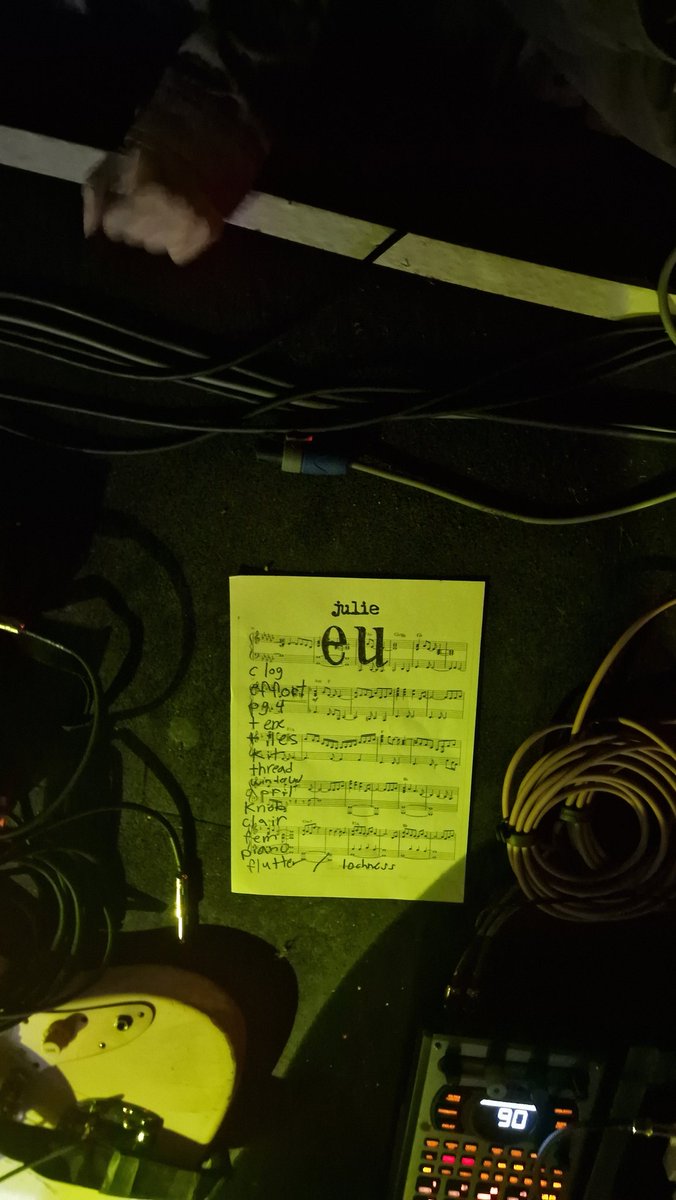 julie
eu
clog
effort
pg.4
tenx
tiles
kit
thread
april
knob
clair
fem
piano
flutter / lochness
90